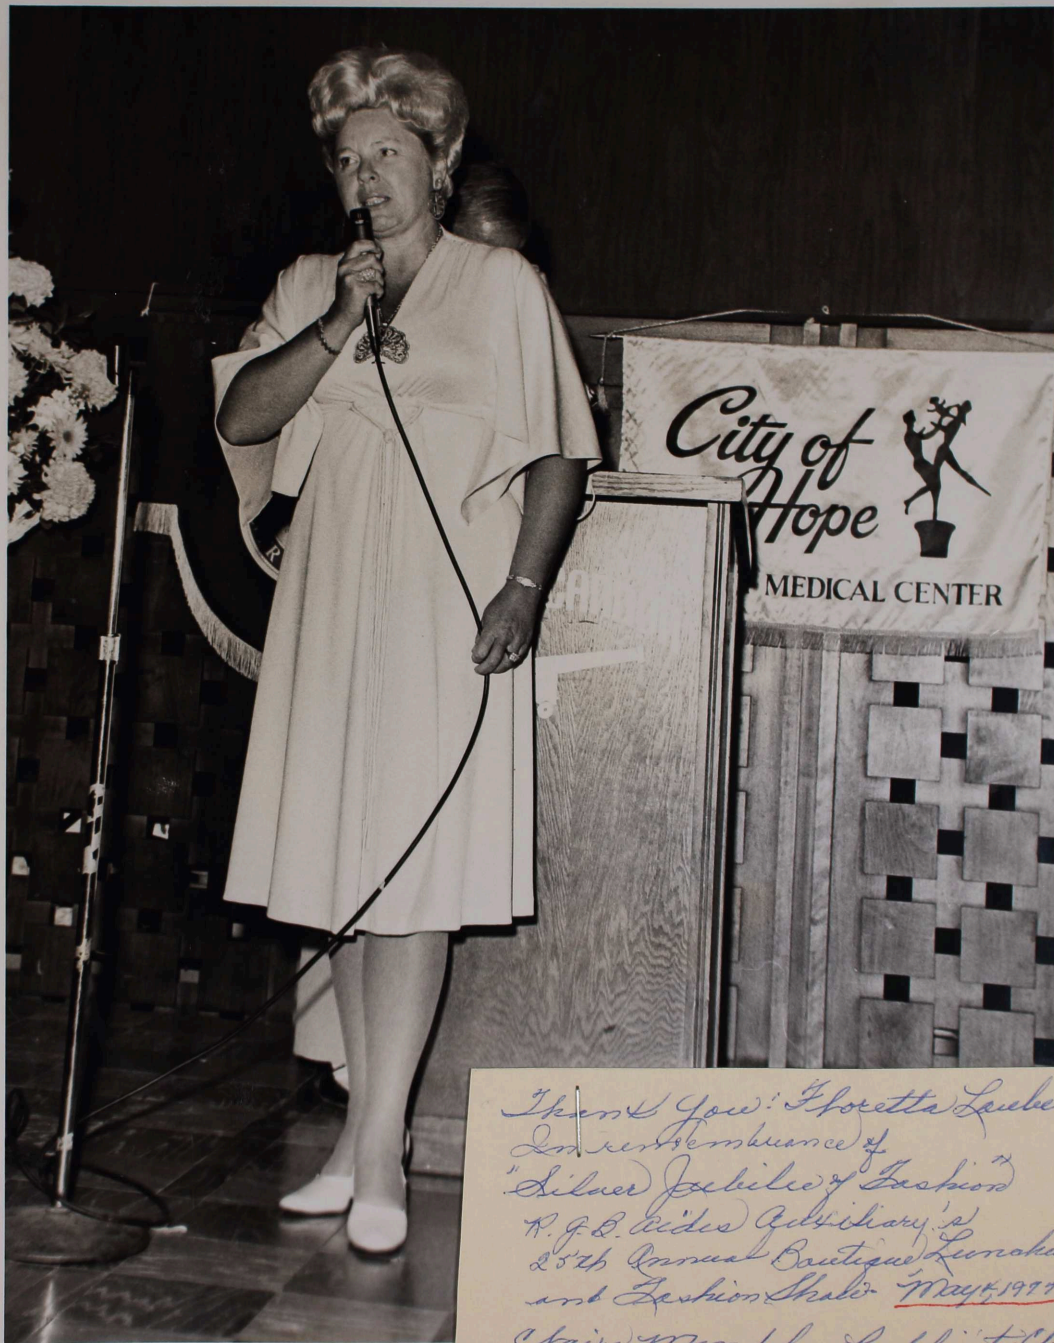 City of
Hope
MEDICAL CENTER
R
Thank You! Floretta
In remembrance of
"Silver Jubilee of Fashion"
R.G.B. Aides Auxiliary's
25th Annual Boutique,
and Fashion Show - May